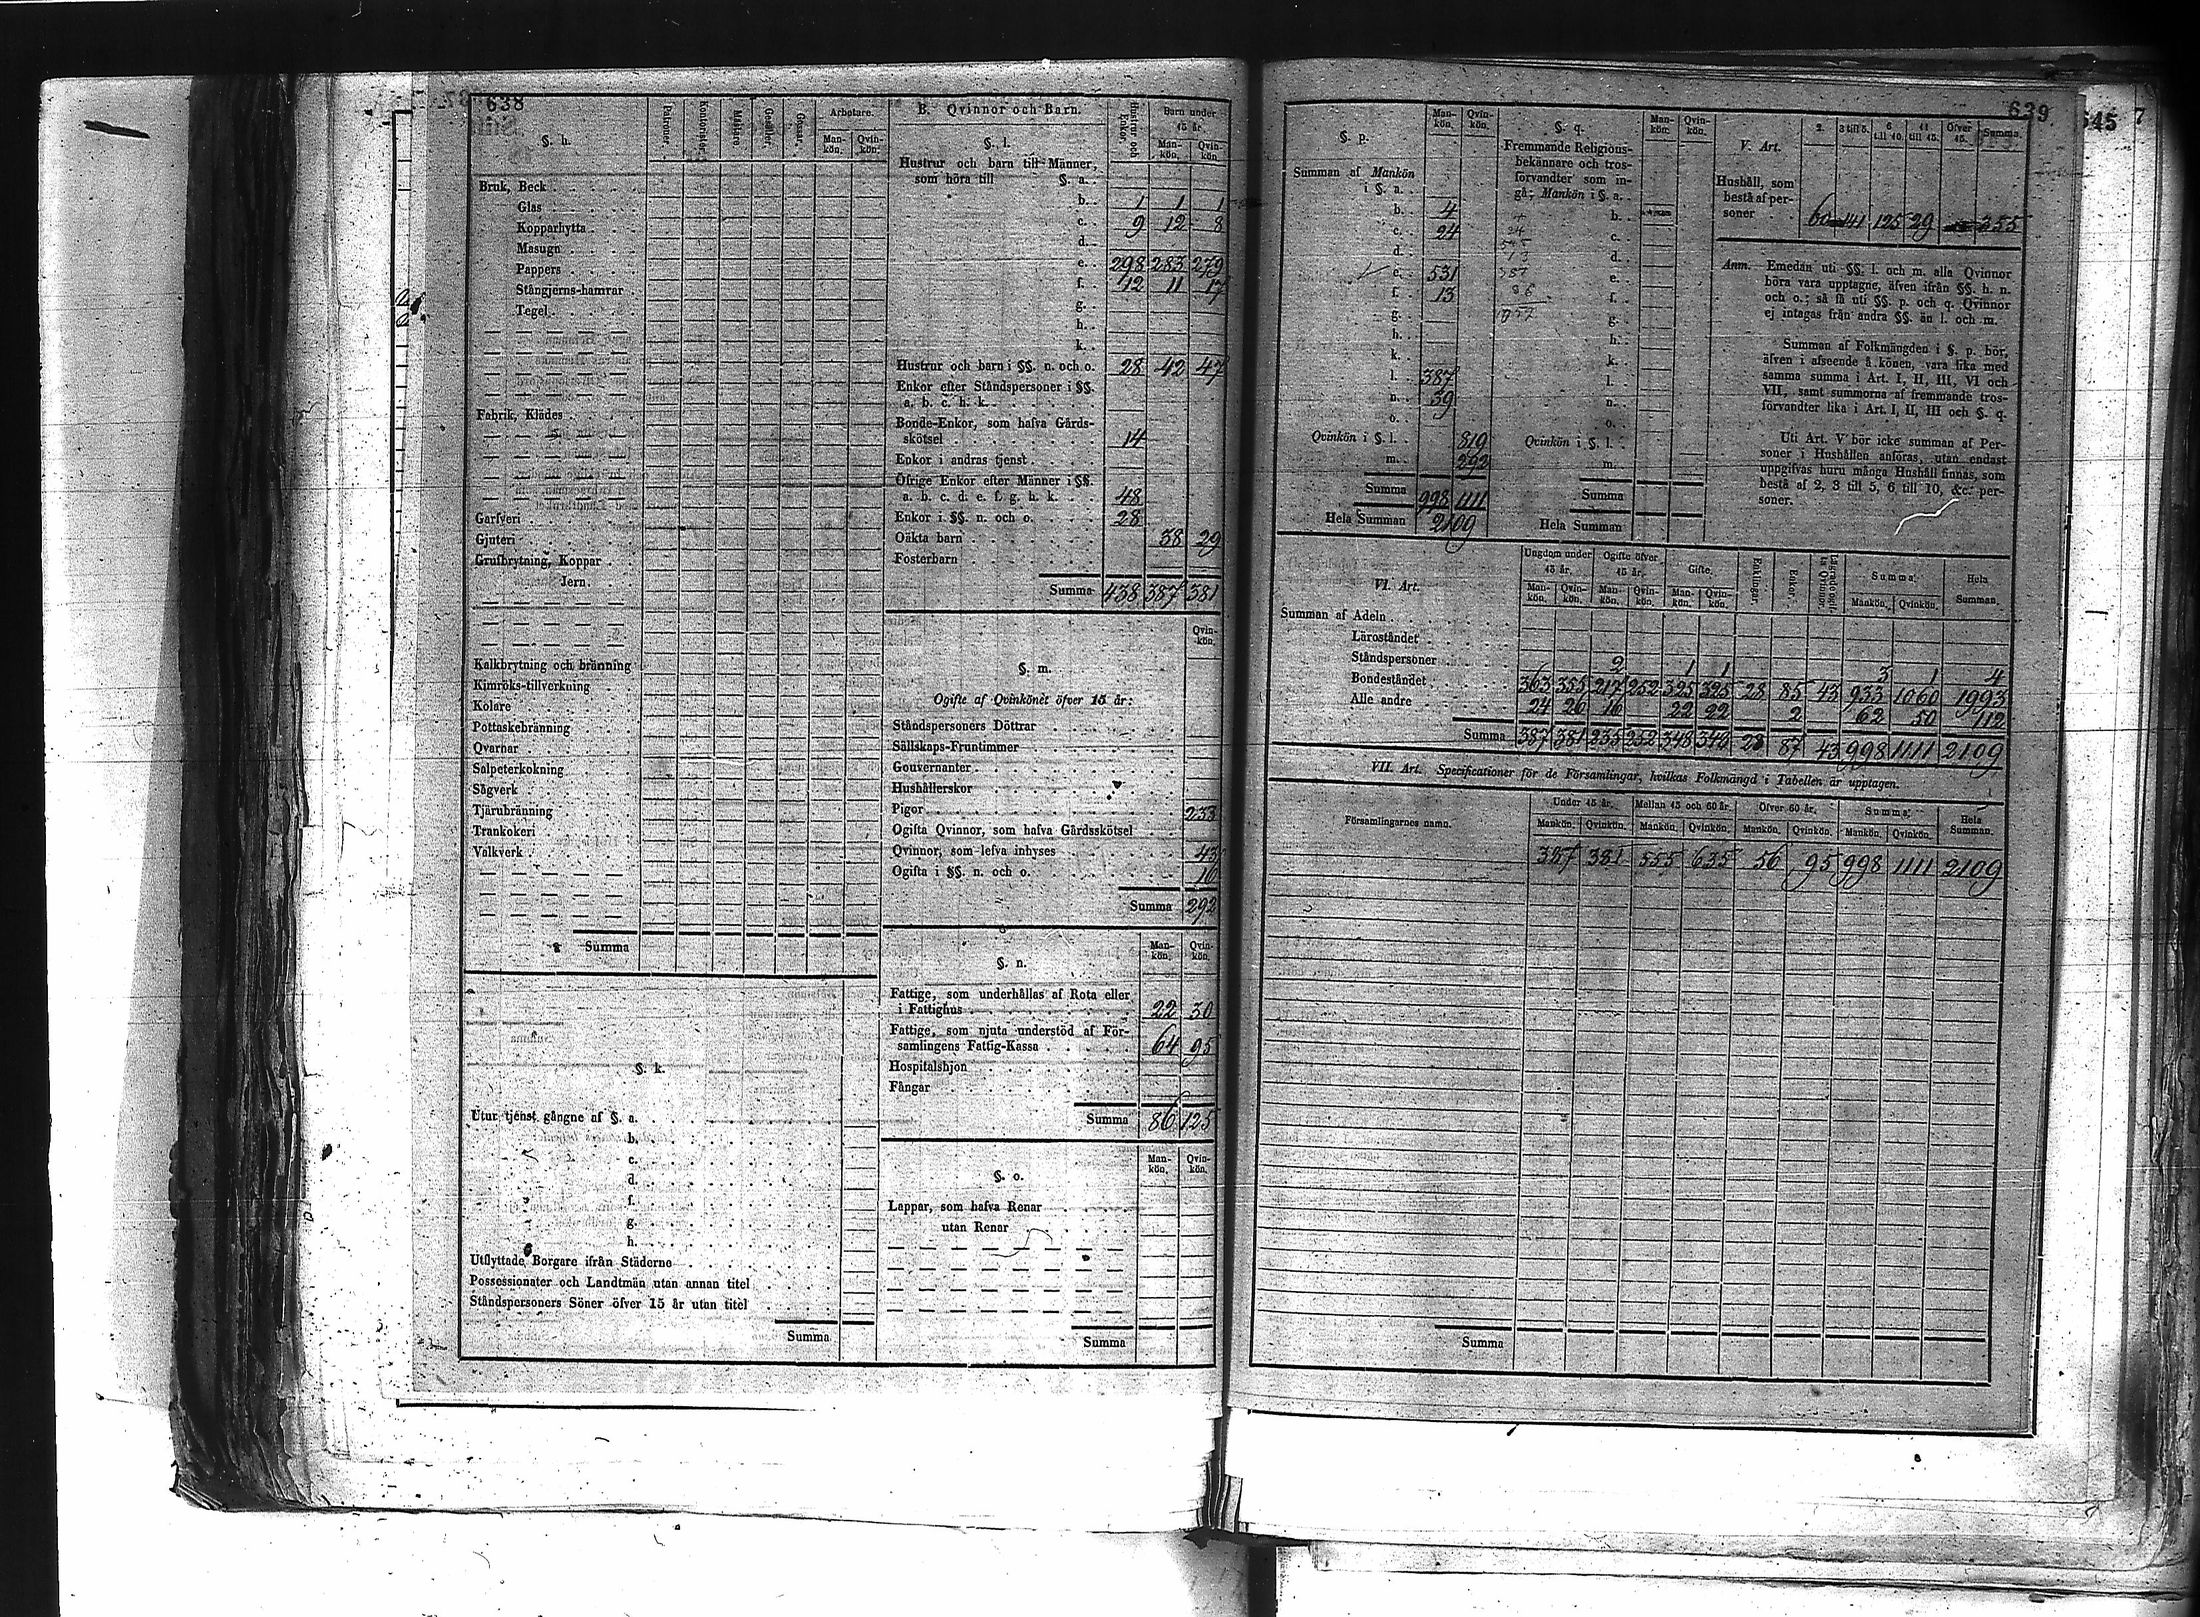 638
§. h.
Patroner.
Kontorister.
Mästare
Gesäller.
Gossar.
Arbetare.
Man-kön.
Qvin-kön.
Bruk, Beck
Glas
Kopparhytta
Masugn
Pappers
Stångjerns-hamrar
Tegel
Fabrik, Klädes
Garfveri
Gjuteri
Grufbrytning, Koppar
Jern
Kalkbrytning och bränning
Kimröks-tillverkning
Kolare
Pottaskebränning
Qvarnar
Salpeterkokning
Sågverk
Tjärubränning
Trankokeri
Valkverk
Summa
§. k.
Utur tjenst gångne af §. a.
b.
c.
d.
f.
g.
h.
Utflyttade Borgare ifrån Städerne
Possessionater och Landtmän utan annan titel
Ståndspersoners Söner öfver 15 år utan titel
Summa
B. Qvinnor och Barn.
Hustrur och Enkor.
Barn under 15 år.
Man-kön.
Qvin-kön.
§. l.
Hustrur och barn till Männer,
som höra till §. a.
b. 1 1 1
c. 9 12 8
d.
e. 298 283 279
f. 12 11 17
g.
h.
k.
Hustrur och barn i §§. n. och o. 28 42 47
Enkor efter Ståndspersoner i §§.
a. b. c. h. k.
Bonde-Enkor, som hafva Gårds-
skötsel 14
Enkor i andras tjenst
Öfrige Enkor efter Männer i §§.
a. b. c. d. e. f. g. h. k. 48
Enkor i §§. n. och o. 28
Oäkta barn 38 29
Fosterbarn
Summa 438 387 381
Qvin-kön.
§. m.
Ogifte af Qvinkönet öfver 15 år:
Ståndspersoners Döttrar
Sällskaps-Fruntimmer
Gouvernanter
Hushållerskor
Pigor 233
Ogifta Qvinnor, som hafva Gårdsskötsel
Qvinnor, som lefva inhyses 43
Ogifta i §§. n. och o. 16
Summa 292
Man-kön.
Qvin-kön.
§. n.
Fattige, som underhållas af Rota eller
i Fattighus 22 30
Fattige, som njuta understöd af För-
samlingens Fattig-Kassa 64 95
Hospitalshjon
Fångar
Summa 86 125
Man-kön.
Qvin-kön.
§. o.
Lappar, som hafva Renar
utan Renar
Summa
639
645
7
§. p.
Man-kön.
Qvin-kön.
Summan af Mankön
i §. a.
b. 4
c. 24
d.
e. 531
f. 13
g.
h.
k.
l. 387
n. 39
o.
Qvinkön i §. l. 819
m. 292
Summa 998 1111
Hela Summan 2109
§. q.
Man-kön.
Qvin-kön.
Fremmande Religions-
bekännare och tros-
förvandter som in-
gå, Mankön i §. a.
b.
c.
d.
e.
f.
g.
h.
k.
l.
n.
o.
Qvinkön i §. l.
m.
Summa
Hela Summan
V. Art.
2. 3 till 5. 6 till 10. 11 till 15. Öfver 15. Summa.
Hushåll, som
bestå af per-
soner 60 141 125 29 355
Anm. Emedan uti §§. l. och m. alla Qvinnor
böra vara upptagne, äfven ifrån §§. h. n.
och o.; så få uti §§. p. och q. Qvinnor
ej intagas från andra §§. än l. och m.
Summan af Folkmängden i §. p. bör,
äfven i afseende å könen, vara lika med
samma summa i Art. I, II, III, VI och
VII, samt summorna af fremmande tros-
förvandter lika i Art. I, II, III och §. q.
Uti Art. V bör icke summan af Per-
soner i Hushållen anföras, utan endast
uppgifvas huru många Hushåll finnas, som
bestå af 2, 3 till 5, 6 till 10, &c. per-
soner.
VI. Art.
Ungdom under 15 år.
Ogifte öfver 15 år.
Gifte.
Enklingar.
Enkor.
Summa.
Hela Summan.
Man-kön. Qvin-kön. Man-kön. Qvin-kön. Man-kön. Qvin-kön. Mankön. Qvinkön.
Summan af Adeln
Läroståndet
Ståndspersoner 2 1 1 3 1 4
Bondeståndet 363 355 217 252 325 325 28 85 43 933 1060 1993
Alle andre 24 26 16 22 22 2 62 50 112
Summa 387 381 235 252 348 348 28 87 43 998 1111 2109
VII. Art. Specificationer för de Församlingar, hvilkas Folkmängd i Tabellen är upptagen.
Församlingarnes namn.
Under 15 år. Mellan 15 och 60 år. Öfver 60 år. Summa. Hela Summan.
Mankön. Qvinkön. Mankön. Qvinkön. Mankön. Qvinkön. Mankön. Qvinkön.
387 381 555 635 56 95 998 1111 2109
Summa